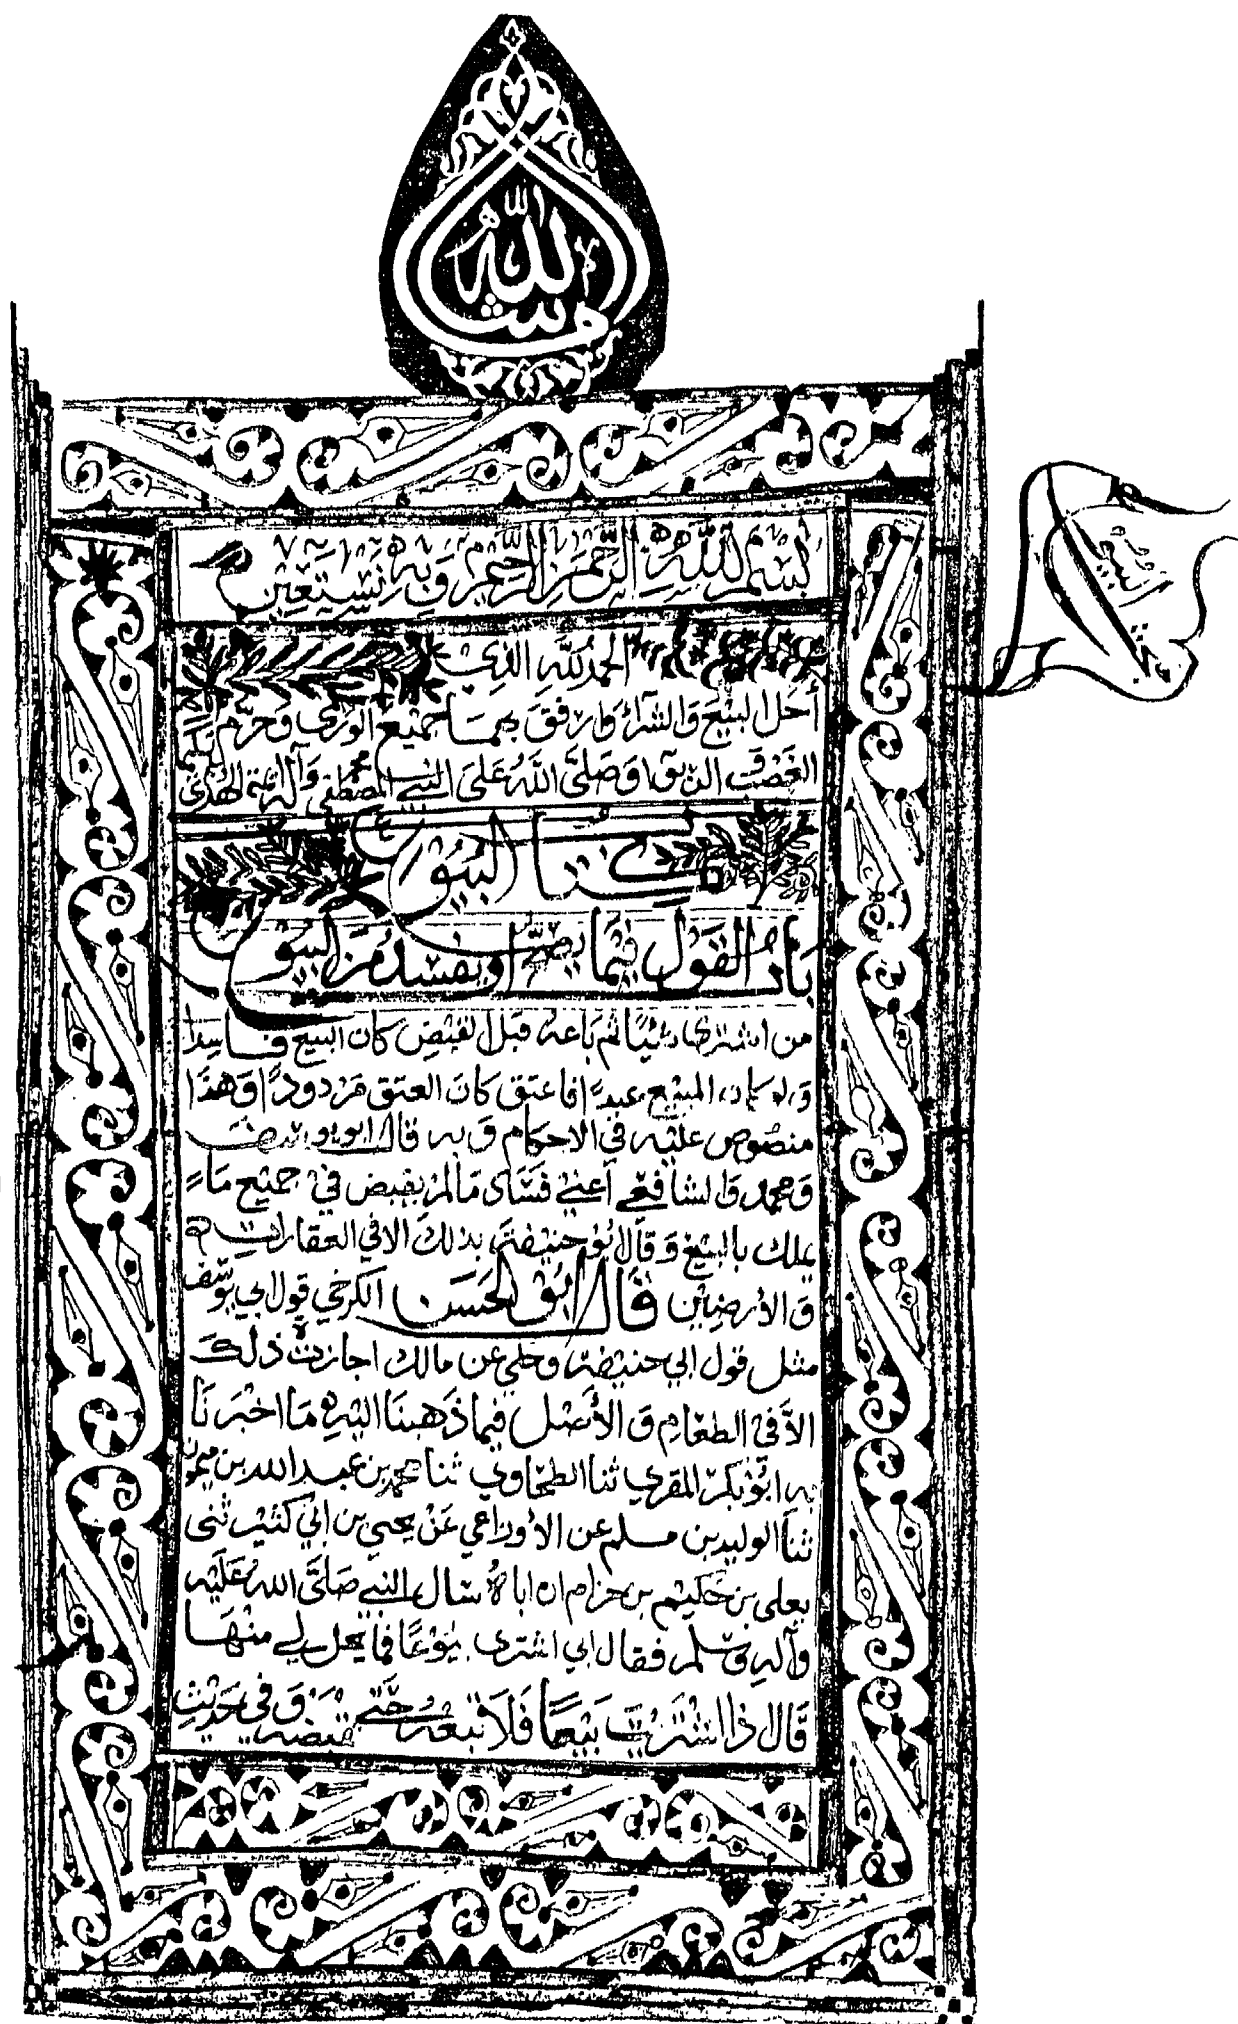 ما شاء الله
بسم الله الرحمن الرحيم وبه نستعين
الحمد لله الذي
أحل البيع والشراء وارفق بهما جميع الورى وحرم
الغضب الربوا وصلى الله على النبي محمد المصطفى وآله ائمة الهدى
كتاب البيوع
باب القول فيما يصح أو يفسد من البيوع
من اشترى شيئا ثم باعه قبل القبض كان البيع فاسدا
ولو كان المبيع عبدا فاعتق كان العتق مردودا وهذا
منصوص عليه في الاحكام وبه قال ابو يوسف
ومحمد والشافعي أعني فساد مالم يقبض في جميع ما
يملك بالبيع وقال ابو حنيفة بذلك الا في العقارات
والأرضين قال ابو الحسن الكرخي قول ابي يوسف
مثل قول ابي حنيفة وحكي عن مالك اجازة ذلك
الا في الطعام والأصل فيما ذهبنا اليه ما اخبرنا
به ابو بكر المقري ثنا الطحاوي ثنا محمد بن عبد الله بن ميمون
ثنا الوليد بن مسلم عن الأوزاعي عن يحيى بن ابي كثير ثنى
يعلى بن حكيم بن حزام ان اباه سال النبي صلى الله عليه
وآله وسلم فقال اني اشترى بيوعا فما يحل لي منها
قال اذا اشتريت بيعا فلا تبعه حتى تقبضه وفي حديث